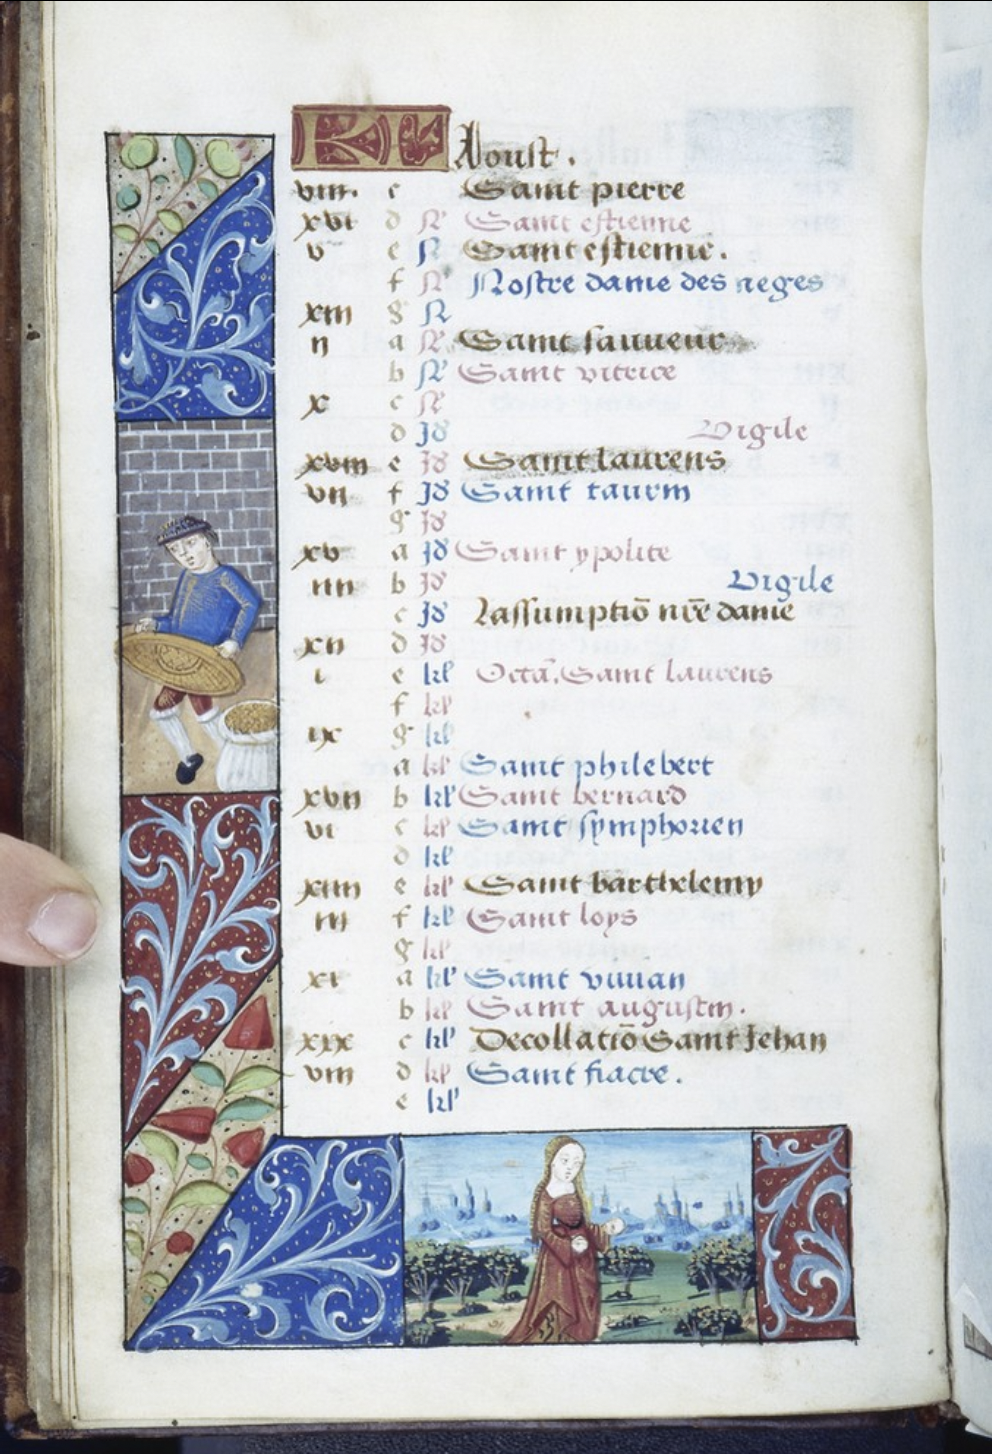 KL Aoust.
viii. c Saint pierre
xvi d N Saint estienne
v e N Saint estienne.
f N Nostre dame des neges
xiii g N
ii a N Saint sauueur
b N Saint vitrice
x c N
d Id Vigile
xviii e Id Saint laurens
vii f Id Saint taurin
g Id
xv a Id Saint ypolite
iiii b Id Vigile
c Id Lassumptiō nr̄e dame
xii d Id
i e kl' Octā. Saint laurens
f kl'
ix g kl'
a kl' Saint philebert
xvii b kl' Saint bernard
vi c kl' Saint symphorien
d kl'
xiiii e kl' Saint barthelemy
iii f kl' Saint loys
g kl'
xi a kl' Saint viuian
b kl' Saint augustin.
xix c kl' Decollatiō Saint Jehan
viii d kl' Saint fiacre.
e kl'